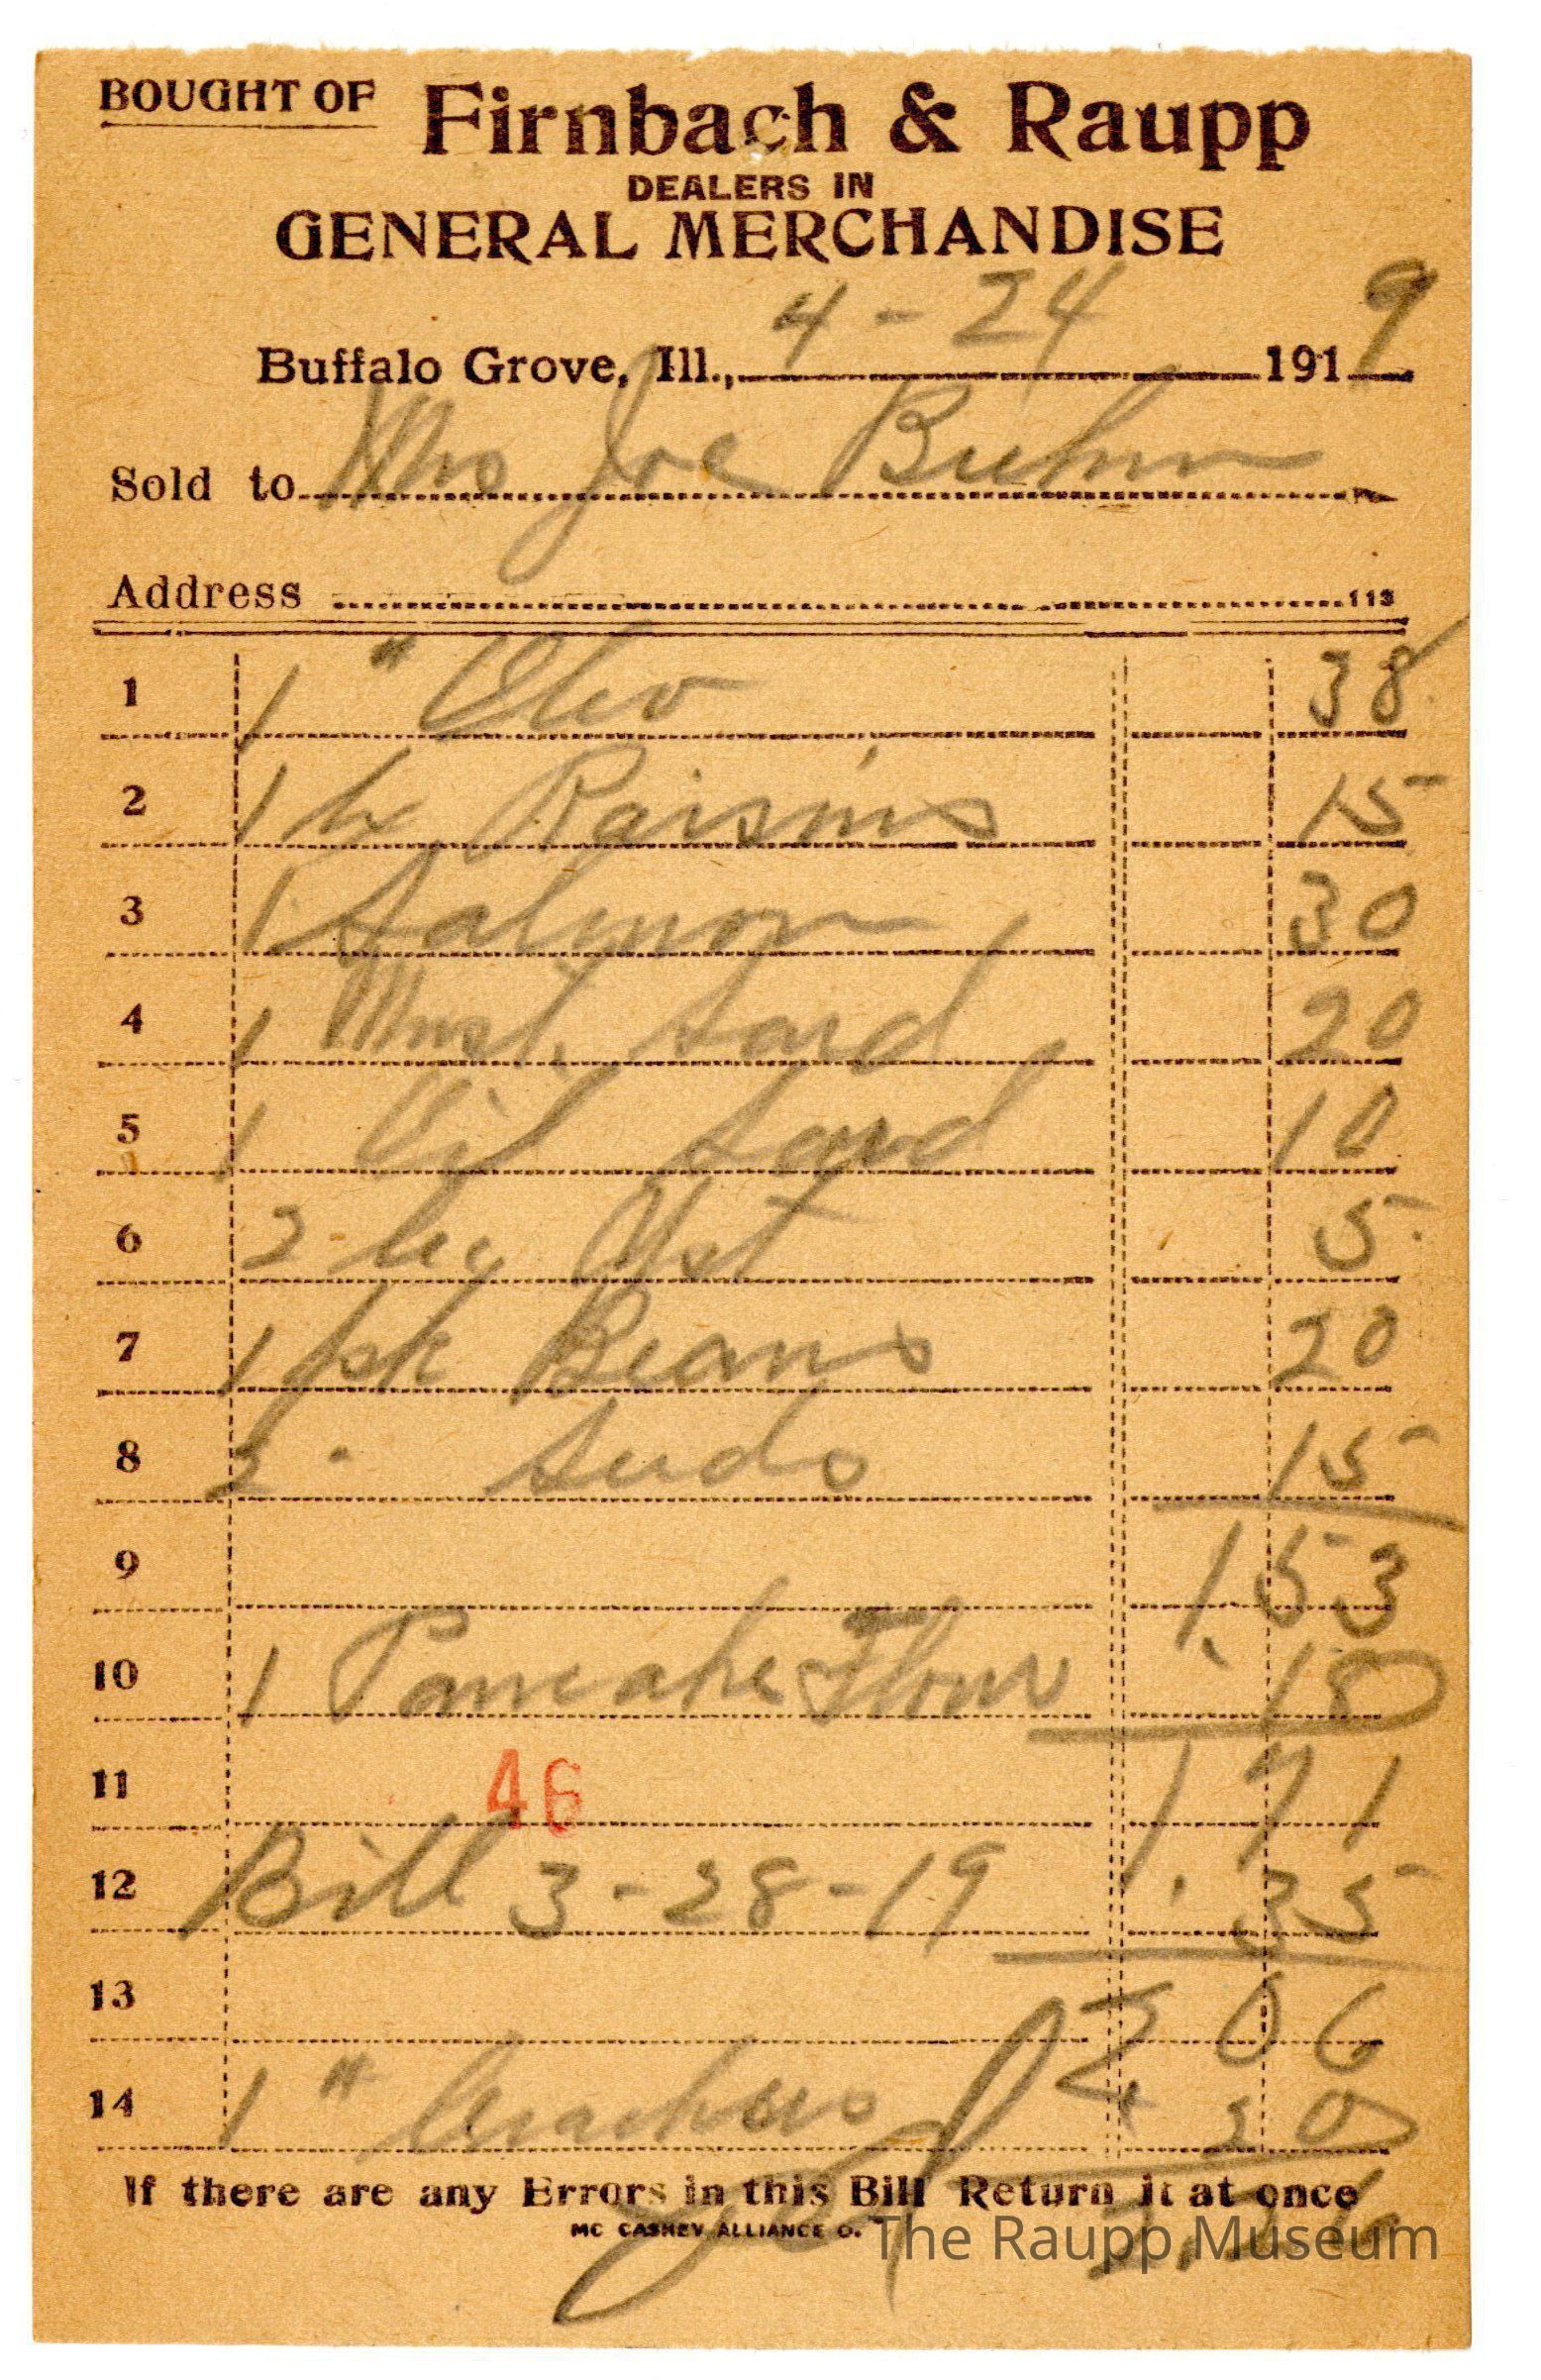 BOUGHT OF Firnbach & Raupp
DEALERS IN
GENERAL MERCHANDISE
Buffalo Grove, Ill., 4 - 24 1919
Sold to Mrs Joe Buhm
Address 113
1 1 # Oleo 38
2 1 Raisins 15
3 1 Salmon 30
4 1 Must. Sard 20
5 1 Oil Sard 10
6 2 Yst 5
7 1 pk Beans 20
8 3 " Suds 15
9 1.53
10 1 Pancake Flour 18
11 46 1.71
12 Bill 3-28-19 1.35
13 3 06
14 1 # Crackers 20
If there are any Errors in this Bill Return it at once
MC CASKEY ALLIANCE O.
The Raupp Museum